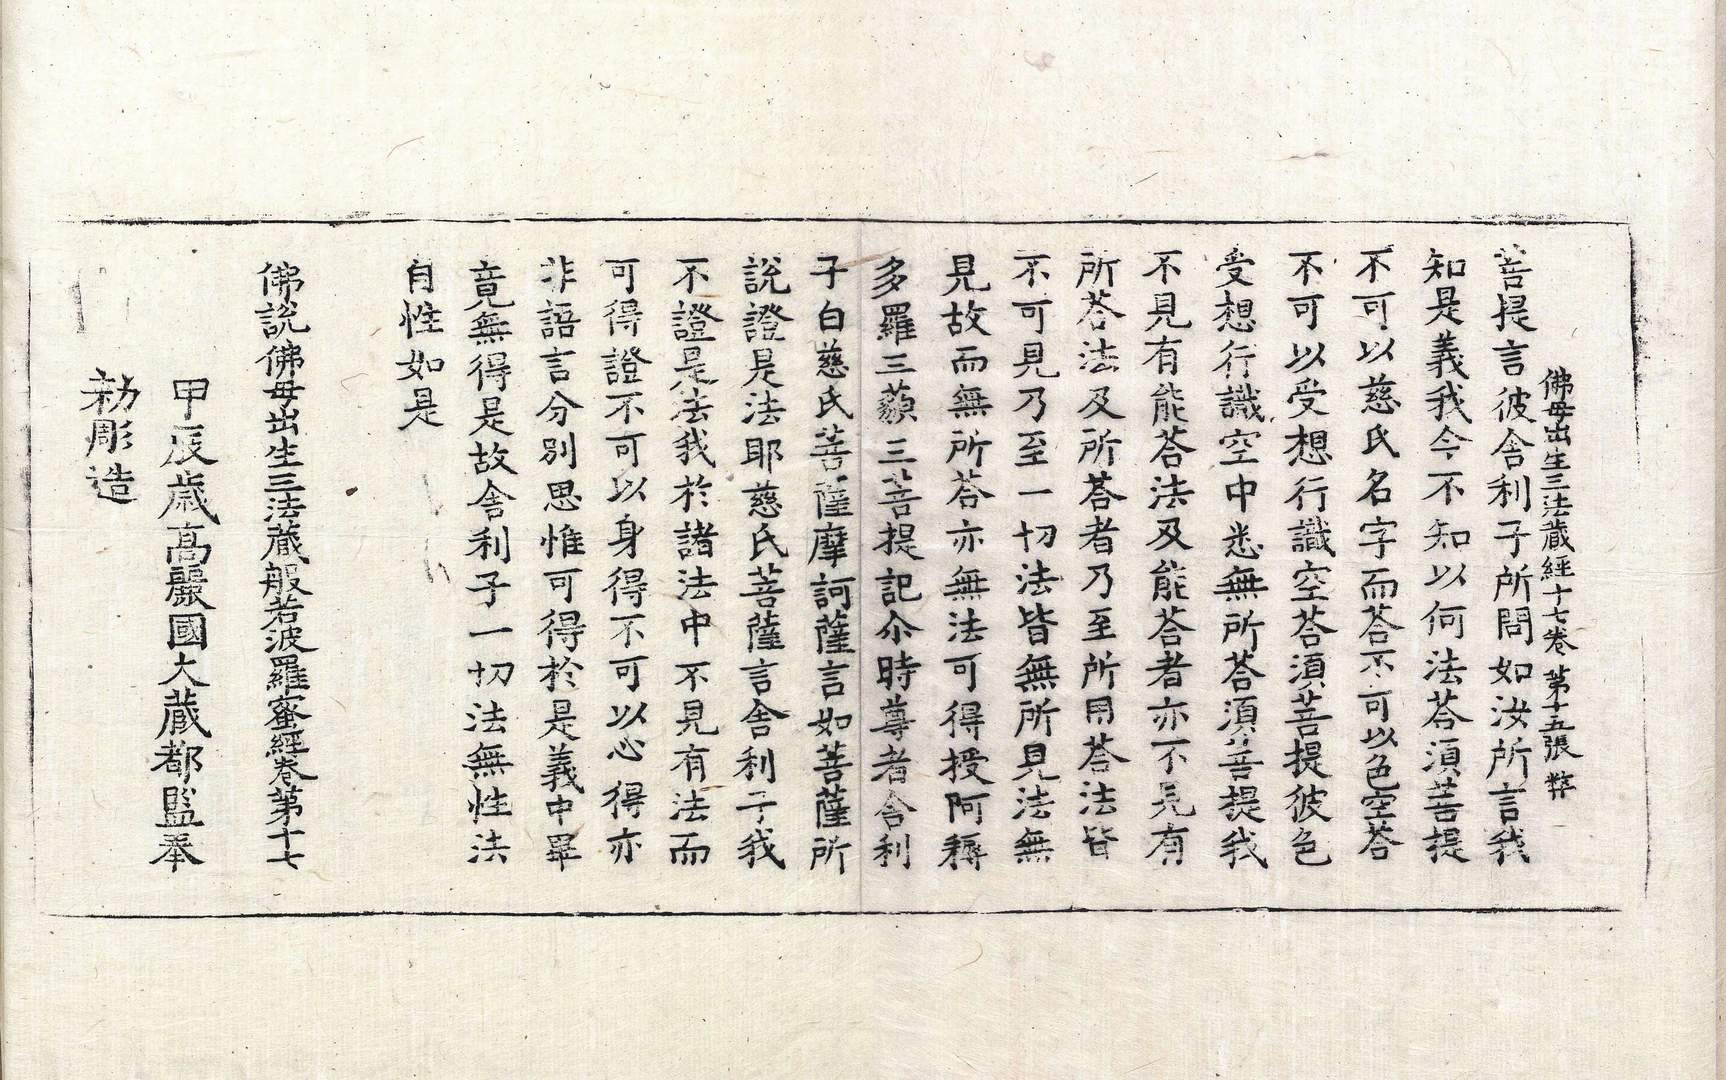 佛母出生三法藏經十七卷 第十五張 幹
菩提言彼舍利子所問如汝所言我
知是義我今不知以何法荅湏菩提
不可以慈氏名字而荅不可以色空荅
不可以受想行識空荅湏菩提彼色
受想行識空中悉無所荅湏菩提我
不見有能荅法及能荅者亦不見有
所荅法及所荅者乃至所用荅法皆
不可見乃至一切法皆無所見法無
見故而無所荅亦無法可得授阿耨
多羅三藐三菩提記尒時尊者舍利
子白慈氏菩薩摩訶薩言如菩薩所
說證是法耶慈氏菩薩言舍利子我
不證是法我於諸法中不見有法而
可得證不可以身得不可以心得亦
非語言分別思惟可得於是義中畢
竟無得是故舍利子一切法無性法
自性如是
佛說佛母出生三法藏般若波羅蜜經卷第十七
甲辰歲高麗國大藏都監奉
勑彫造